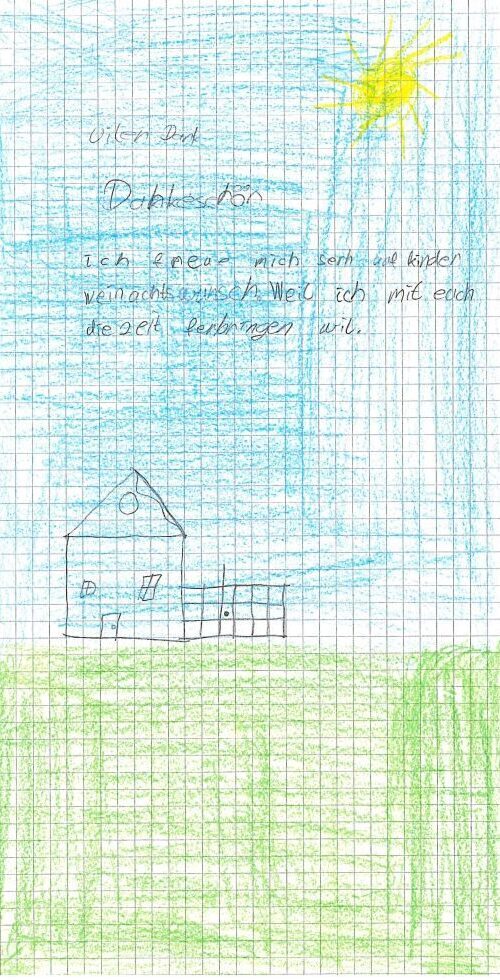 Vilen Dank
Dahkeschön
ich freue mich serh auf kinder
weinachtswunsch. Weil ich mit euch
die zeit ferbringen wil.